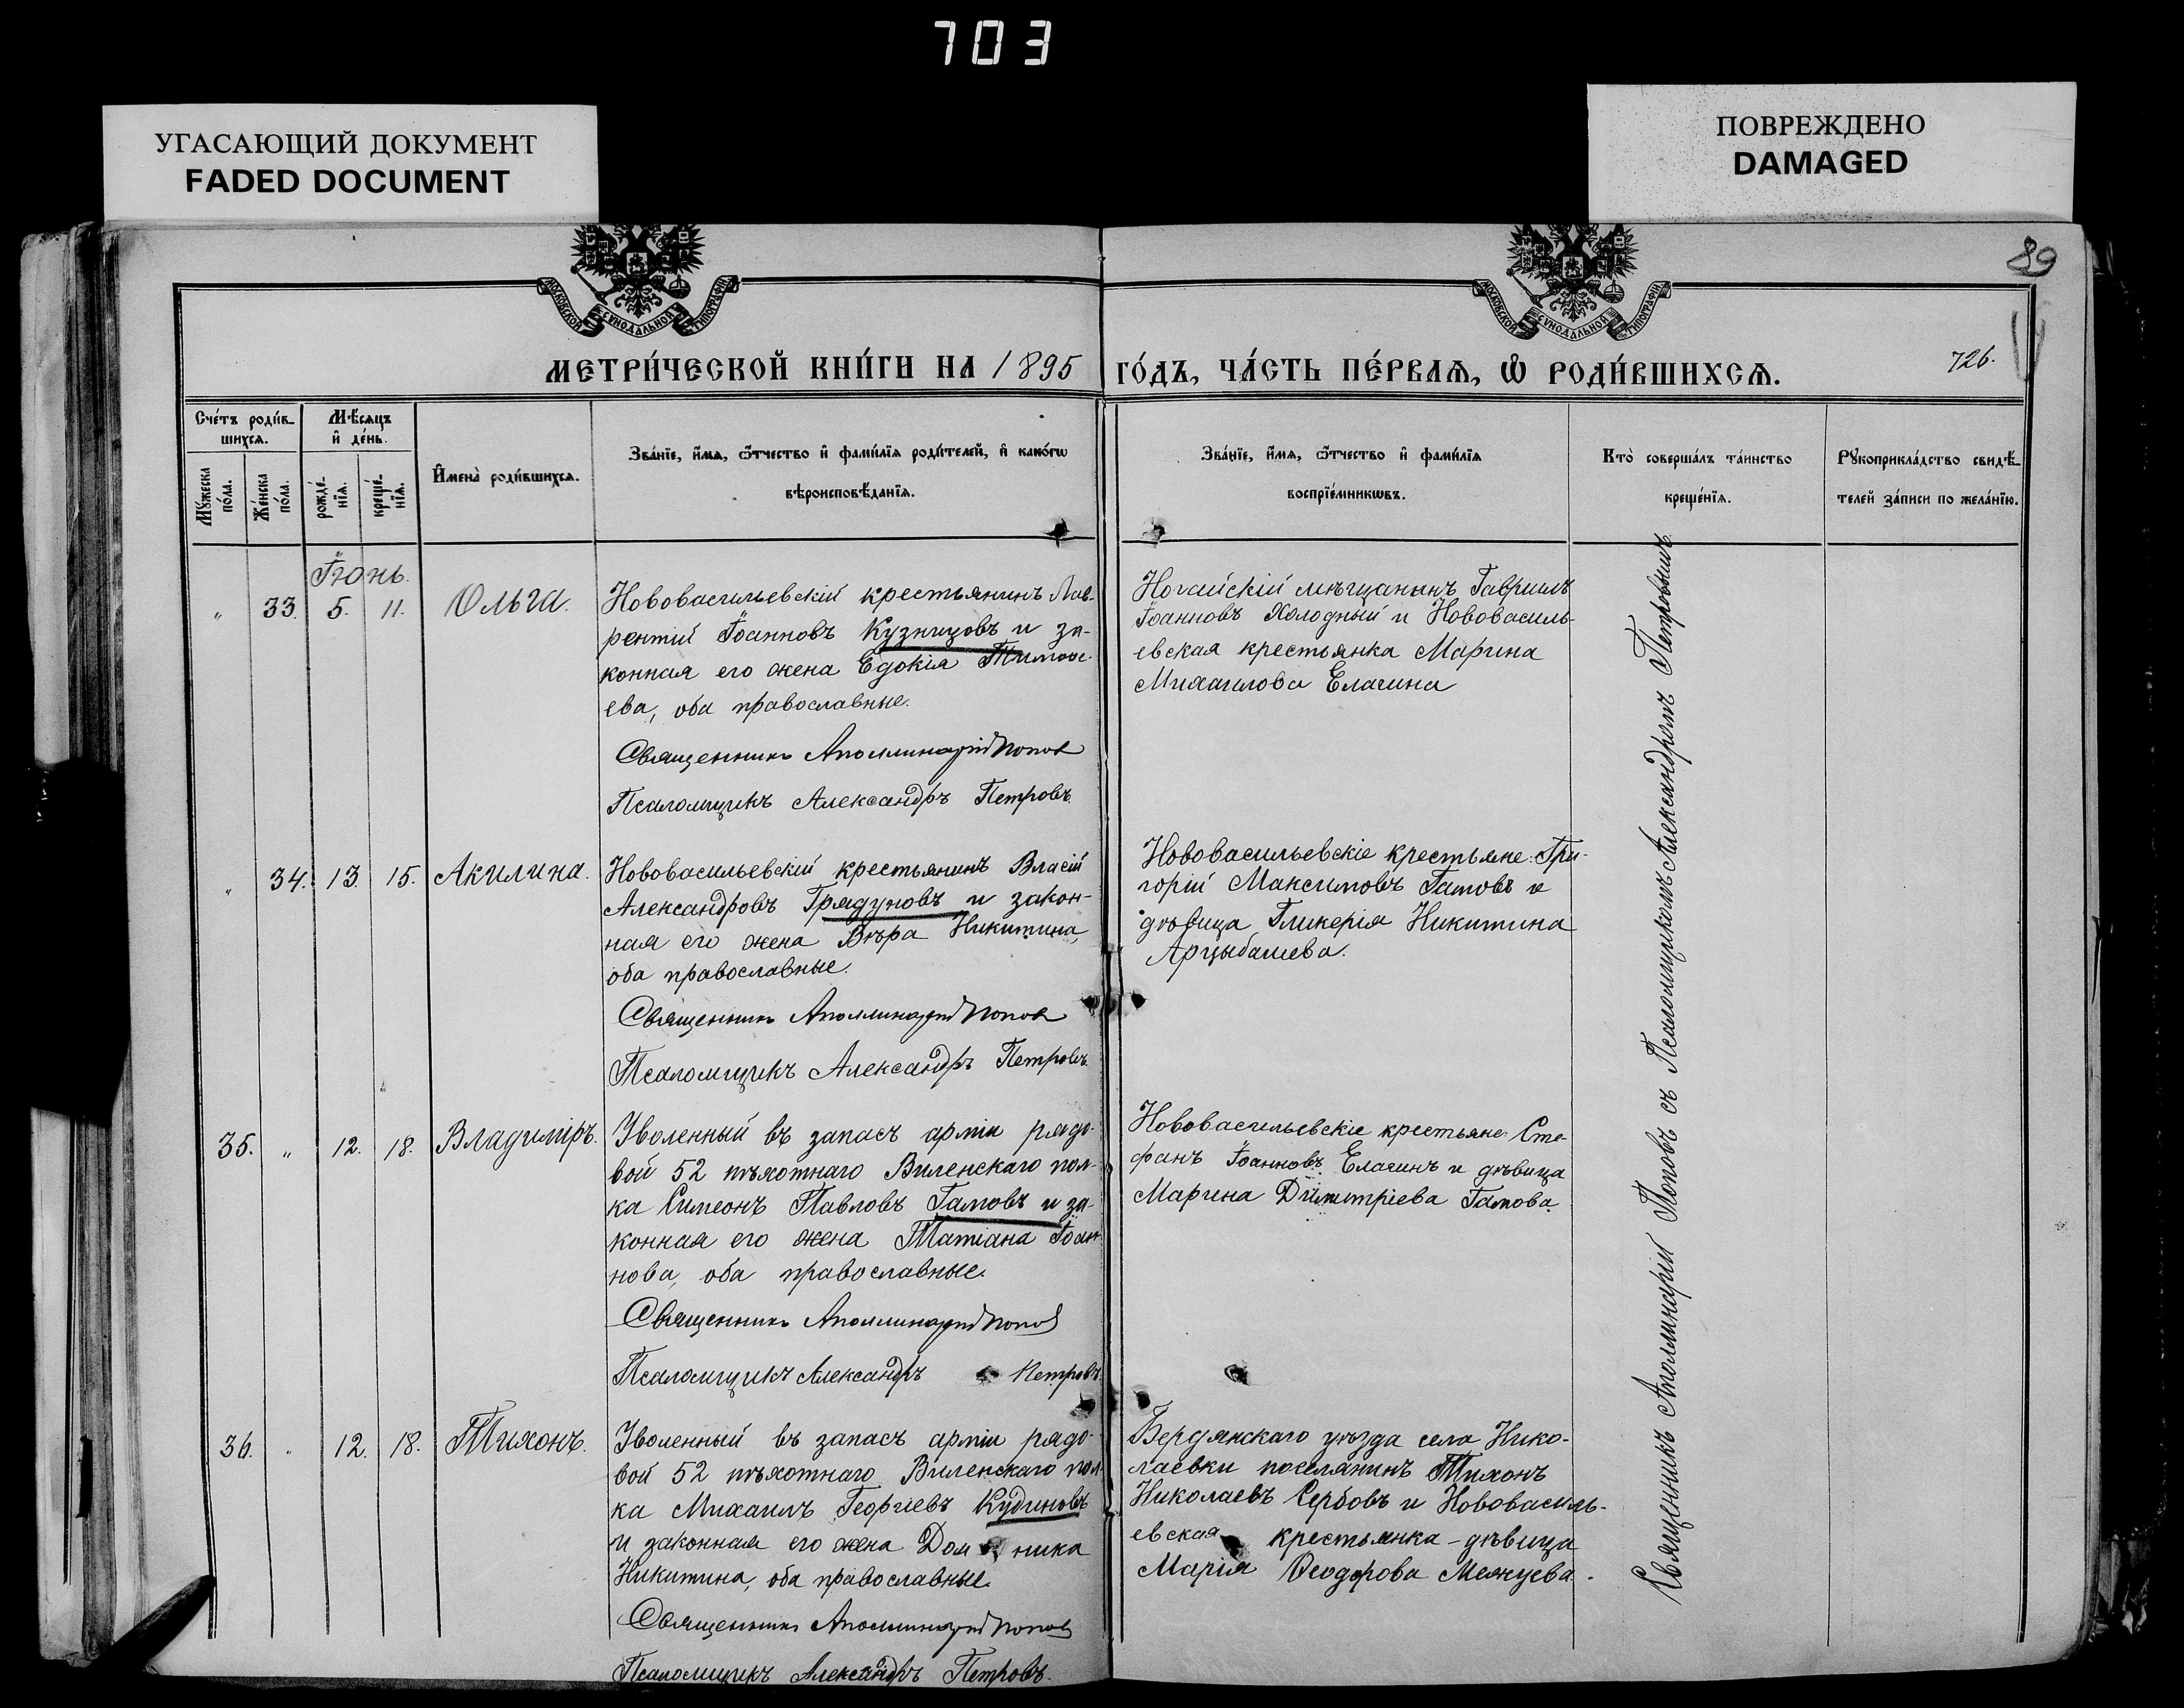 703
УГАСАЮЩИЙ ДОКУМЕНТ
FADED DOCUMENT
ПОВРЕЖДЕНО
DAMAGED
89
МОСКОВСКОЙ СѴНОДАЛЬНОЙ ТИПОГРАФІИ
МОСКОВСКОЙ СѴНОДАЛЬНОЙ ТИПОГРАФІИ
МЕТРИ́ЧЕСКОЙ КНИ́ГИ НА 1895 ГО́ДЪ, ЧА́СТЬ ПЕ́РВАѦ, Ѽ РОДИ́ВШИХСѦ.
726.
Сче́тъ роди́в-
шихсѧ.
Мѣ́сѧцъ
и҆ де́нь.
Мꙋ́жеска
по́ла.
Же́нска
по́ла.
рожде́-
нїѧ.
креще́-
нїѧ.
И҆мена̀ роди́вшихсѧ.
Зва́нїе, и҆́мѧ, ѻ҆́тчество и҆ фами́лїѧ роди́телей, и҆ како́гѡ
вѣроисповѣ́данїѧ.
Зва́нїе, и҆́мѧ, ѻ҆́тчество и҆ фами́лїѧ
воспрїе́мникѡвъ.
Кто̀ соверша́лъ та́инство
креще́нїѧ.
Рꙋкоприкла́дство свидѣ́-
телей за́писи по жела́нїю.
Іюнь.
" 33. 5. 11. Ольга.
Нововасильевскій крестьянинъ Лав-
рентій Іоанновъ Кузнецовъ и за-
конная его жена Едокія
ева, оба православные.
Священникъ Аполлинарій Попов
Псаломщикъ Александръ Петровъ.
Ногайскій мѣщанинъ Гавриилъ
Іоанновъ Холодный и Нововасиль-
евская крестьянка Марина
Михаилова Елагина
" 34. 13. 15. Акилина.
Нововасильевскій крестьянинъ Власій
Александровъ Грядуновъ и закон-
ная его жена Вѣра Никитина,
оба православные.
Священникъ Аполлинарій Попов
Псаломщикъ Александръ Петровъ.
Нововасильевскіе крестьяне: Гри-
горій Максимовъ Гамовъ и
дѣвица Гликерія Никитина
Арцыбашева.
35. " 12. 18. Владиміръ.
Уволенный въ запасъ арміи рядо-
вой 52 пѣхотнаго Виленскаго пол-
ка Симеонъ Павловъ Гамовъ и за-
конная его жена Татіана Іоан-
нова, оба православные.
Священникъ Аполлинарій Попов
Псаломщикъ Александръ Петровъ.
Нововасильевскіе крестьяне: Сте-
фанъ Іоанновъ Елагинъ и дѣвица
Марина Димитріева Гамова.
36. " 12. 18. Тихонъ.
Уволенный въ запасъ арміи рядо-
вой 52 пѣхотнаго Виленскаго пол-
ка Михаилъ Георгіевъ Кудиновъ
и законная его жена Дом ника
Никитина, оба православные.
Священникъ Аполлинарій Попов
Псаломщикъ Александръ Петровъ.
Бердянскаго уѣзда села Нико-
лаевки поселянинъ Тихонъ
Николаевъ Сербовъ и Нововасиль-
евская крестьянка - дѣвица
Марія Ѳеодорова Межуева.
Священникъ Аполлинарій Поповъ съ Псаломщикомъ Александромъ Петровымъ.